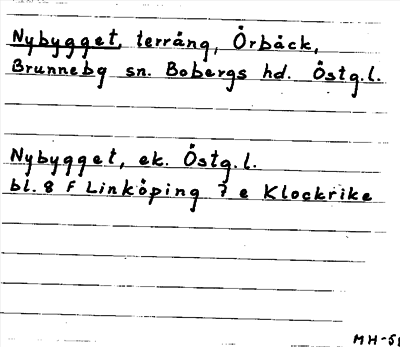 Nybygget, terräng, Örbäck,
Brunnebg sn. Bobergs hd. Östg.l.
Nybygget, ek. Östg.l.
bl. 8 F Linköping 7 e Klockrike